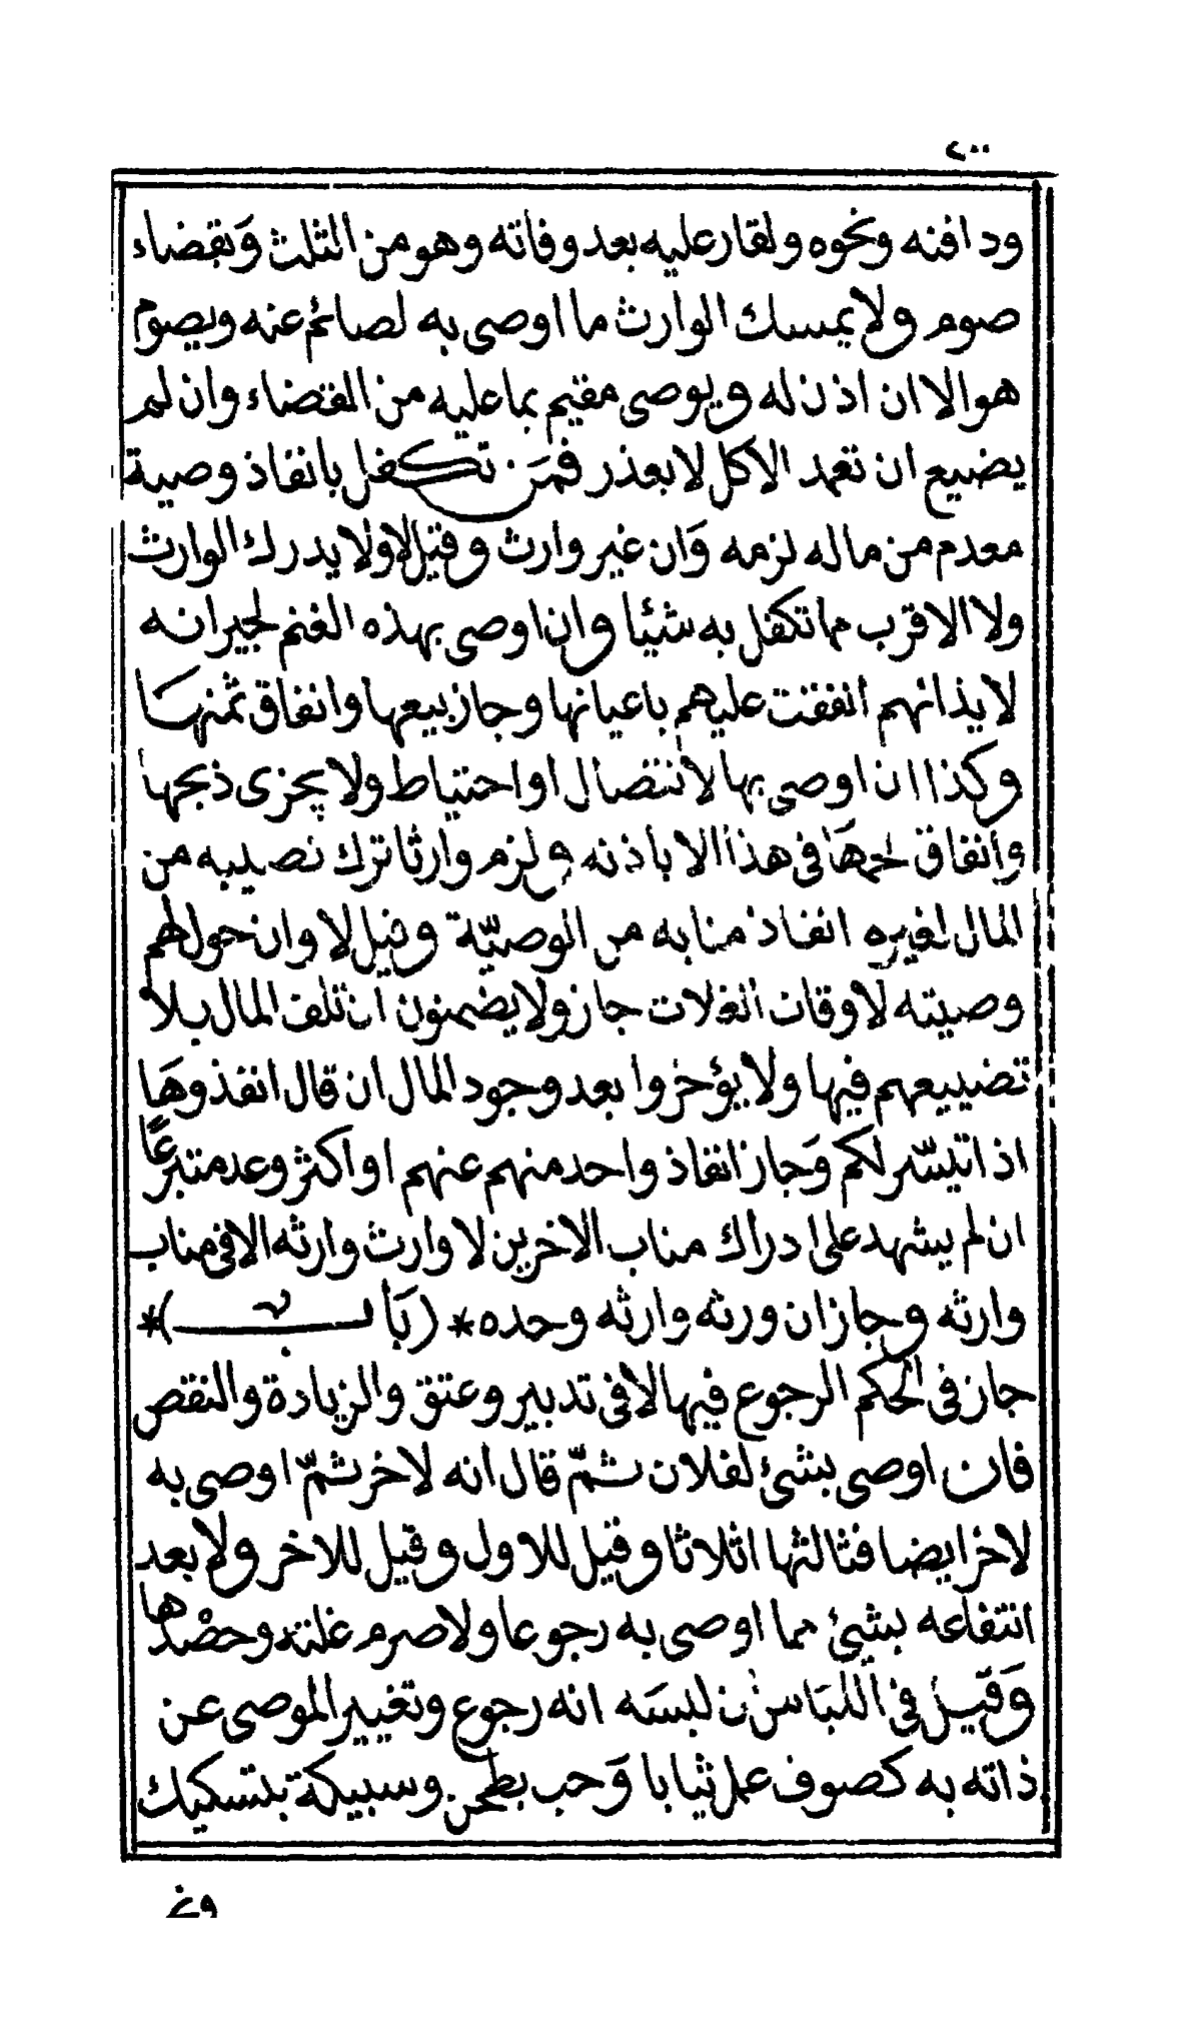 ٢٠٠
ودافنه ونحوه ولقار عليه بعد وفاته وهو من الثلث وَبقضاء
صوم ولا يمسك الوارث ما اوصى به لصائم عنه ويصوم
هو الا ان اذن له ويوصى مقيم بما عليه من القضاء وان لم
يضيع ان تعمد الاكل لا بعذر فمَن تكفل بانفاذ وصية
معدم من ماله لزمه وَان غير وارث وقيل لا ولا يدرك الوارث
ولا الاقرب مما تكفل به شيئا وان اوصى بهذه الغنم لجيرانه
لا يذائهم انفقت عليهم باعيانها وجاز بيعها وانفاق ثمنها
وكذا ان اوصى بها لانتصال او احتياط ولا يجزى ذبحها
وانفاق لحمهَا فى هذا الا باذنه ولزم وارثا ترك نصيبه من
المال لغيره انفاذ منابه من الوصيّة وقيل لا وان حول لهم
وصيته لاوقات الغلات جاز ولا يضمنون ان تلف المال بلا
تضييعهم فيها ولا يؤخروا بعد وجود المال ان قال انفذوهَا
اذا تيسّر لكم وَجاز انفاذ واحد منهم عنهم او اكثر وعد متبرعًا
ان لم يشهد على ادراك مناب الاخرين لا وارث وارثه الا فى مناب
وارثه وجاز ان ورثه وارثه وحده * (بَاب) *
جاز فى الحكم الرجوع فيها الا فى تدبير وعتق والزيادة والنقص
فان اوصى بشئ لفلان ثمّ قال انه لاخر ثمّ اوصى به
لاخر ايضا فثالثها اثلاثا وقيل للاول وقيل للاخر ولا بعد
انتفاعه بشئ مما اوصى به رجوعا ولا صرم غلته وحصْدها
وَقيل فى اللبَاس ان لبسَه انه رجوع وتغيير الموصى عن
ذاته به كصوف عمل ثيابا وَحب بطحن وسبيكة بتسكيك
وغ